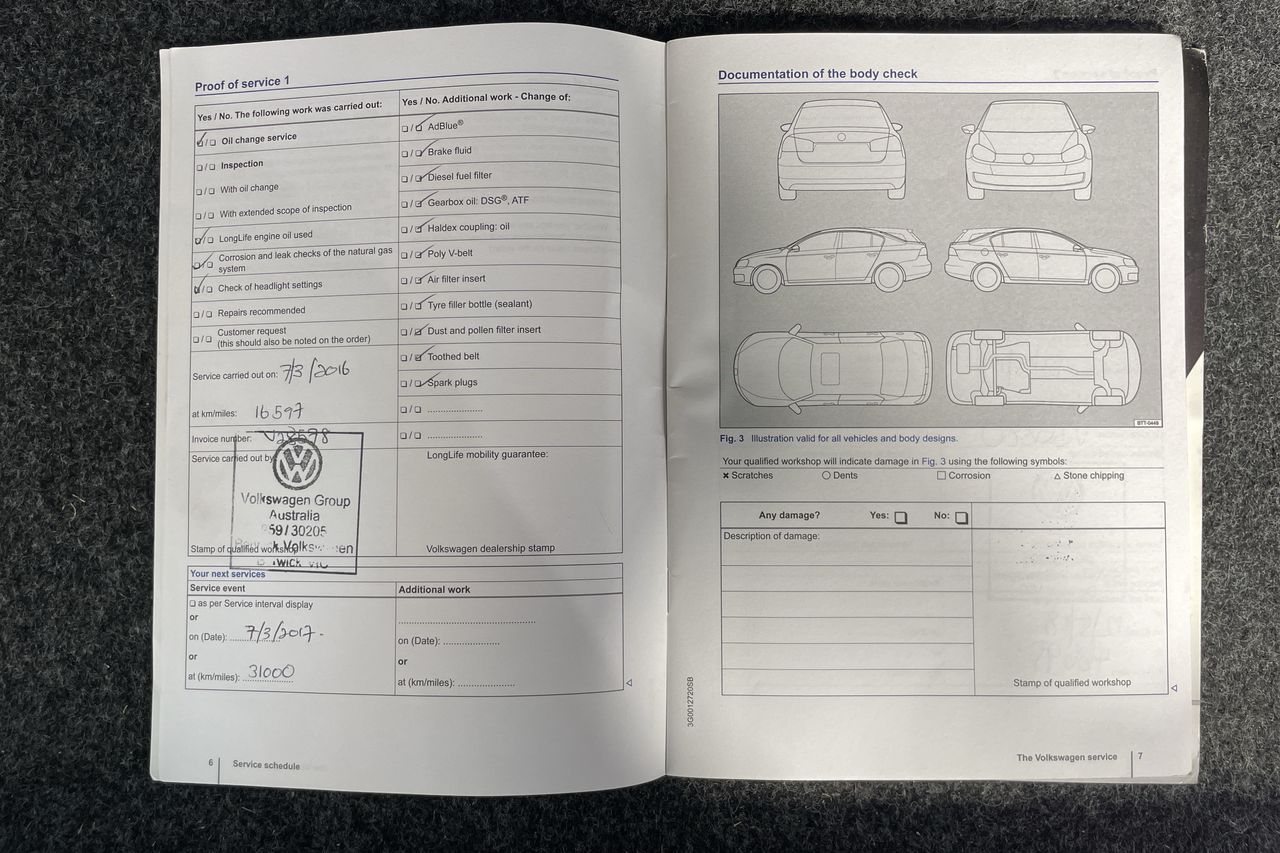 Proof of service 1
Yes / No. The following work was carried out:
☑/❑ Oil change service
❑/❑ Inspection
❑/❑ With oil change
❑/❑ With extended scope of inspection
☑/❑ LongLife engine oil used
☑/❑ Corrosion and leak checks of the natural gas
system
☑/❑ Check of headlight settings
❑/❑ Repairs recommended
❑/❑ Customer request
(this should also be noted on the order)
Service carried out on: 7/3/2016
at km/miles: 16597
Invoice number:
Service carried out by:
Volkswagen Group
Australia
59/30205
Stamp of qualified workshop
Yes / No. Additional work - Change of:
❑/☑ AdBlue®
❑/☑ Brake fluid
❑/☑ Diesel fuel filter
❑/☑ Gearbox oil: DSG®, ATF
❑/☑ Haldex coupling: oil
❑/☑ Poly V-belt
❑/☑ Air filter insert
❑/☑ Tyre filler bottle (sealant)
❑/☑ Dust and pollen filter insert
❑/☑ Toothed belt
❑/☑ Spark plugs
❑/❑ ......................
❑/❑ ......................
LongLife mobility guarantee:
Volkswagen dealership stamp
Your next services
Service event
❑ as per Service interval display
or
on (Date): 7/3/2017.
or
at (km/miles): 31000
Additional work
on (Date): ......................
or
at (km/miles): ......................
6 Service schedule
Documentation of the body check
BTT-0449
Fig. 3 Illustration valid for all vehicles and body designs.
Your qualified workshop will indicate damage in Fig. 3 using the following symbols:
× Scratches ○ Dents □ Corrosion △ Stone chipping
Any damage? Yes: ❑ No: ❑
Description of damage:
Stamp of qualified workshop
3G0012720SB
The Volkswagen service 7